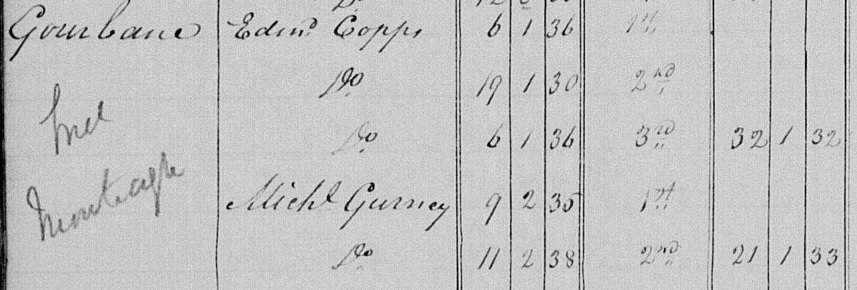 Gourbane Edmd Copps 6 1 36 1st
Do 19 1 30 2nd
Do 6 1 36 3rd 32 1 32
Michl Gurney 9 2 35 1st
Monteagle
Do 11 2 38 2nd 21 1 33